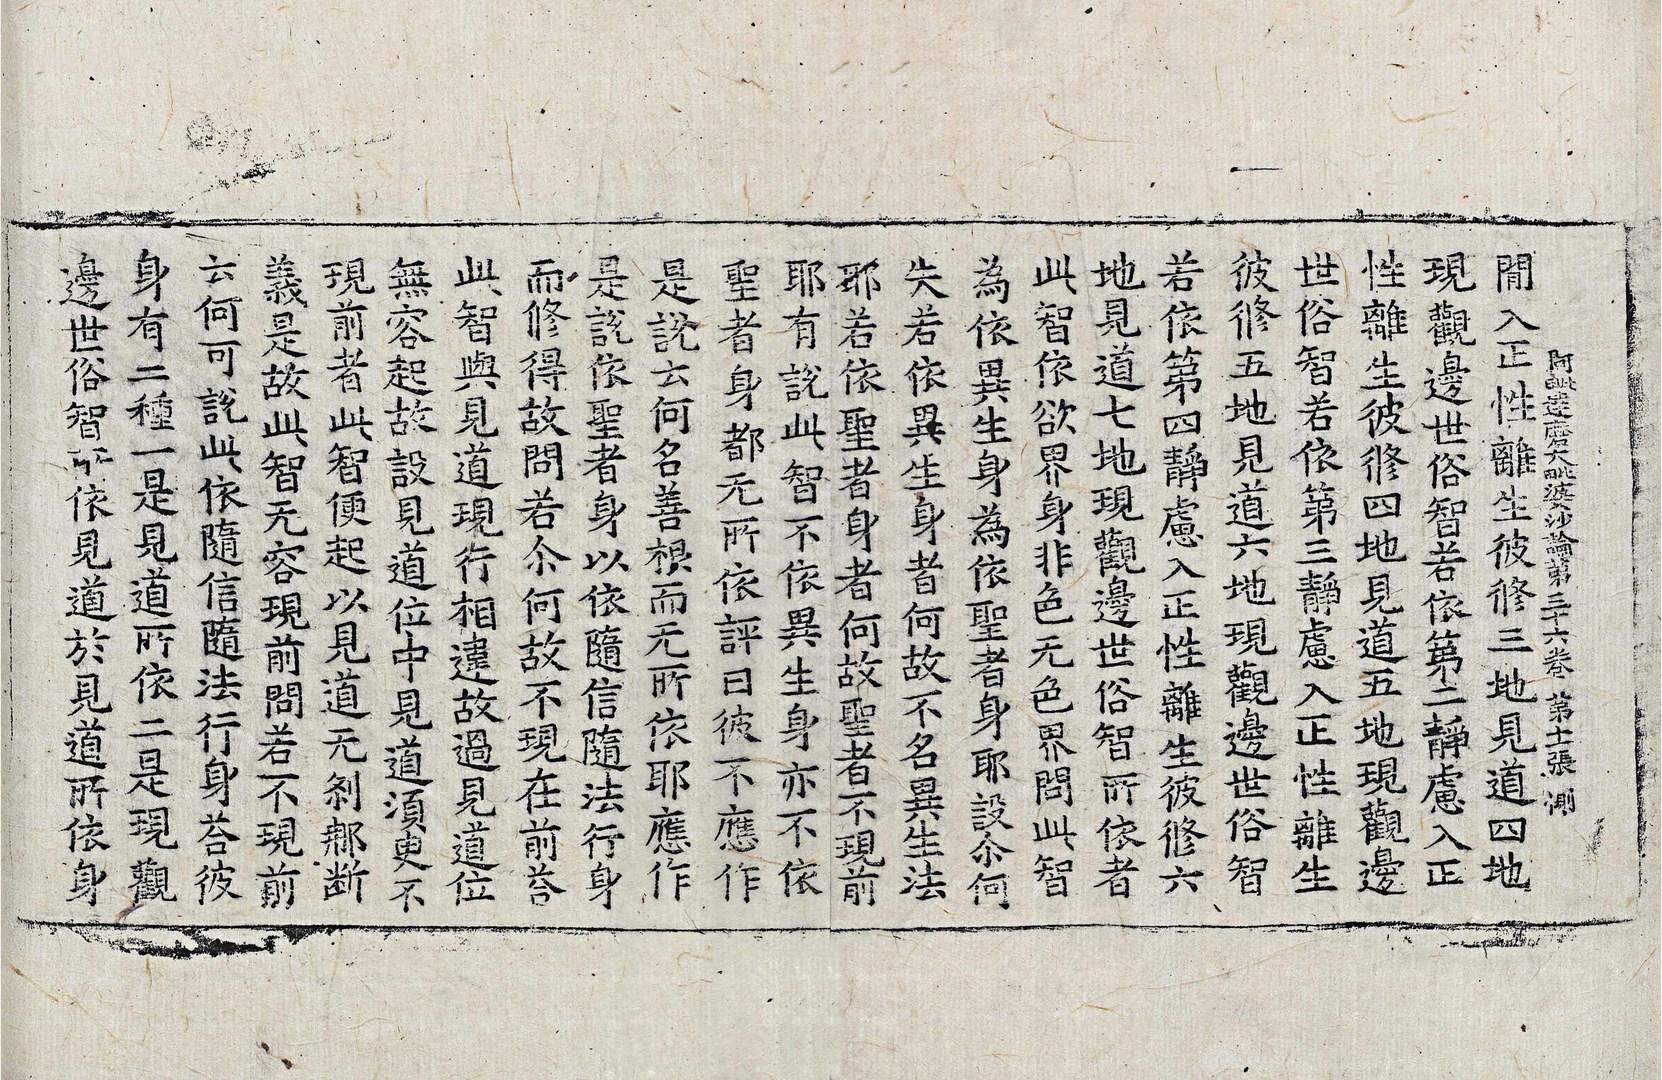 阿毗達磨大毗婆沙論第三十六卷 第十二張 測
間入正性離生彼修三地見道四地
現觀邊世俗智若依第二靜慮入正
性離生彼修四地見道五地現觀邊
世俗智若依第三靜慮入正性離生
彼修五地見道六地現觀邊世俗智
若依第四靜慮入正性離生彼修六
地見道七地現觀邊世俗智所依者
此智依欲界身非色无色界問此智
為依異生身為依聖者身耶設尒何
失若依異生身者何故不名異生法
耶若依聖者身者何故聖者不現前
耶有說此智不依異生身亦不依
聖者身都无所依評曰彼不應作
是說云何名善根而无所依耶應作
是說依聖者身以依隨信隨法行身
而修得故問若尒何故不現在前荅
此智與見道現行相違故過見道位
無容起故設見道位中見道湏臾不
現前者此智便起以見道无剎那断
義是故此智无容現前問若不現前
云何可說此依隨信隨法行身荅彼
身有二種一是見道所依二是現觀
邊世俗智所依見道於見道所依身